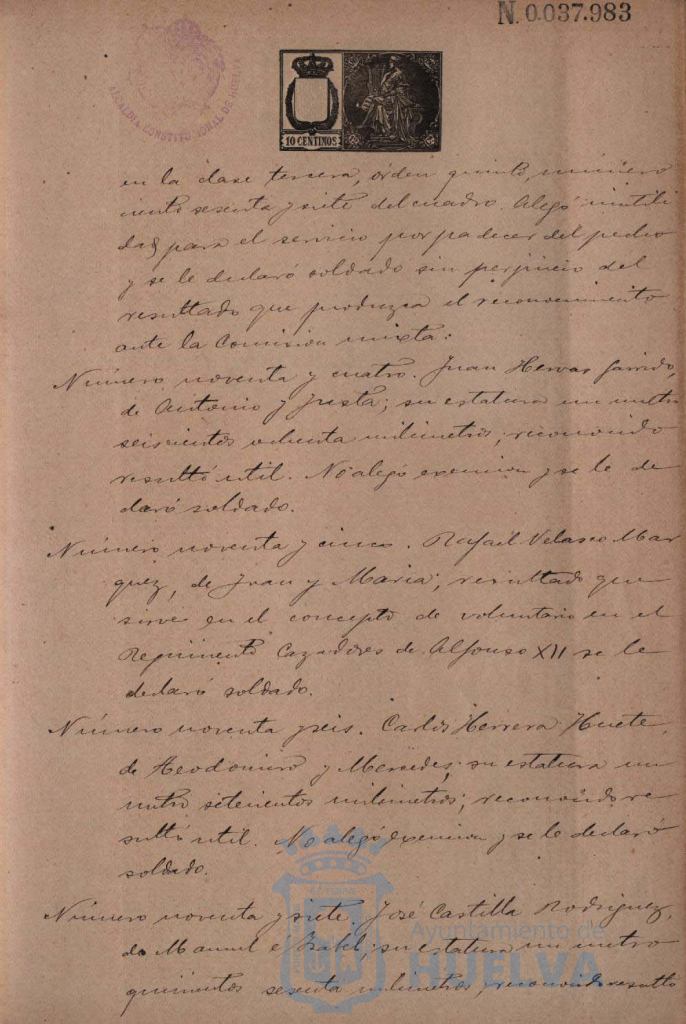 N. 0.037.983
ALCALDIA CONSTITUCIONAL DE HUELVA
10 CENTIMOS
en la clase tercera, órden quinto, número
ciento sesenta y siete del cuadro. Alegó inutili
dad para el servicio por padecer del pecho
y se le declaró soldado sin perjuicio del
resultado que produzca el reconocimiento
ante la Comision mixta:
Número noventa y cuatro. Juan Hervas Garrido,
de Antonio y Justa; su estatura un metro
seiscientos ochenta milimetros; reconocido
resultó util. No alegó exencion y se le de
claró soldado.
Número noventa y cinco. Rafael Velasco Mar
quez, de Juan y Maria; resultado que
sirve en el concepto de voluntario en el
Regimiento Cazadores de Alfonso XII se le
declaró soldado.
Número noventa y seis. Carlos Herrera Huete,
de Teodomiro y Mercedes; su estatura un
metro setecientos milimetros; reconocido re
sultó util. No alegó exencion y se le declaró
soldado.
Número noventa y siete. José Castilla Rodriguez,
de Manuel e Isabel; su estatura un metro
quinientos sesenta milimetros; reconocido resultó
Ayuntamiento de
HUELVA